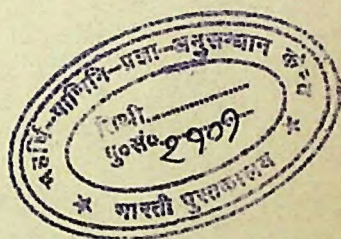 महर्षि-पाणिनि-प्रज्ञा-अनुसन्धान केन्द्र
तिथी..............
पु०सं० २१०१
* भारती पुस्तकालय *